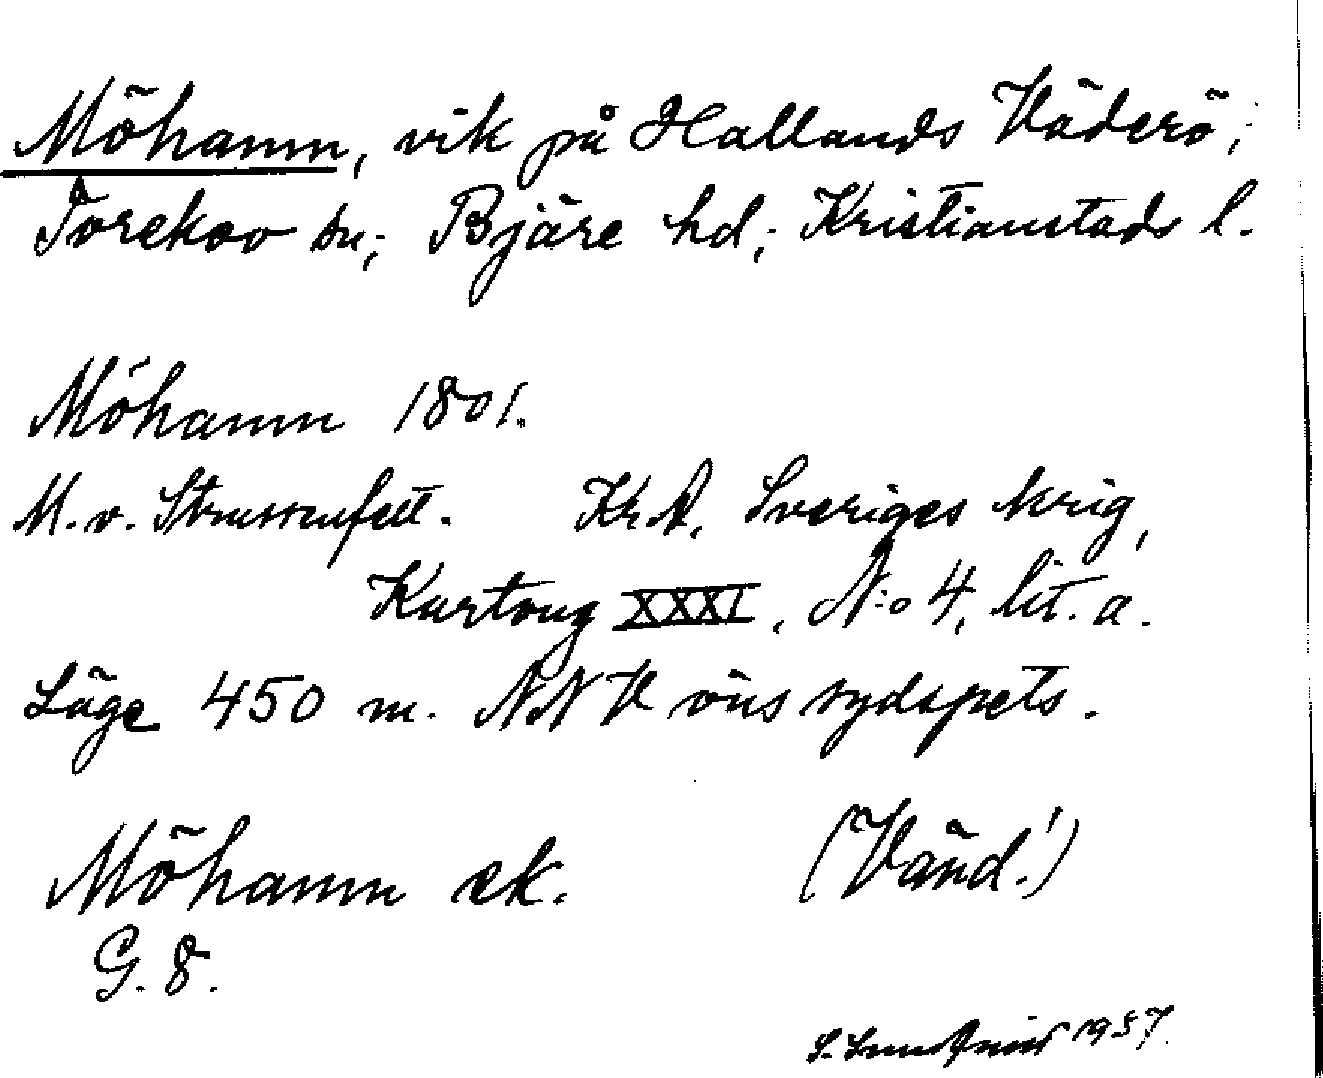 Möhamn, vik på Hallands Väderö;
Torekov sn; Bjäre hd; Kristianstads l.
Möhamn 1801.
M. v. Strussenfelt. Kr. A. Sveriges krig,
Kartong XXXI, N:o 4, lit. a.
Läge 450 m. NNV öns sydspets.
Möhamn ek. (Vänd!)
G. 8.
S. 1937.